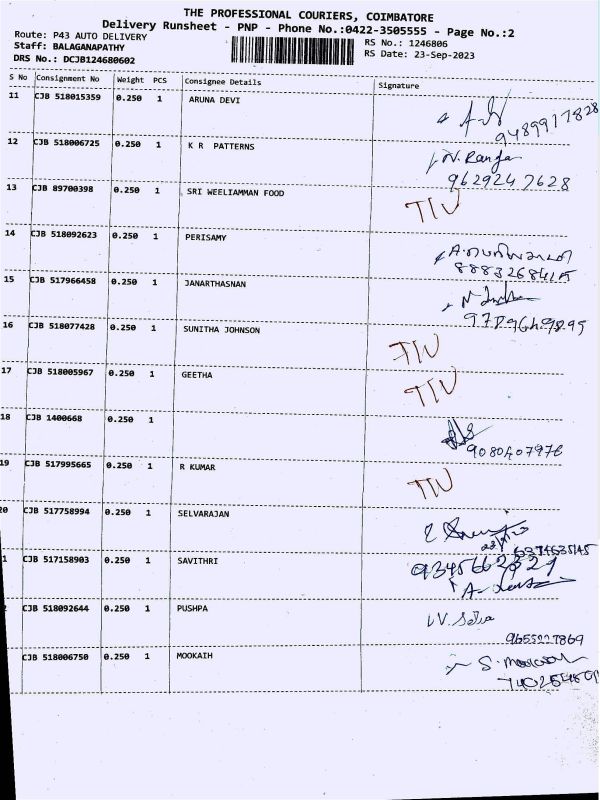 THE PROFESSIONAL COURIERS, COIMBATORE
Delivery Runsheet - PNP - Phone No.:0422-3505555 - Page No.:2
Route: P43 AUTO DELIVERY RS No.: 1246806
Staff: BALAGANAPATHY RS Date: 23-Sep-2023
DRS No.: DCJB124680602
S No Consignment No Weight PCS Consignee Details Signature
11 CJB 518015359 0.250 1 ARUNA DEVI
9489917828
12 CJB 518006725 0.250 1 K R PATTERNS N. Ranga
9629247628
13 CJB 89700398 0.250 1 SRI WEELIAMMAN FOOD TIU
14 CJB 518092623 0.250 1 PERISAMY
8883268415
15 CJB 517966458 0.250 1 JANARTHASNAN
16 CJB 518077428 0.250 1 SUNITHA JOHNSON TIU
17 CJB 518005967 0.250 1 GEETHA TIU
18 CJB 1400668 0.250 1
19 CJB 517995665 0.250 1 R KUMAR TIU
20 CJB 517758994 0.250 1 SELVARAJAN
6374635145
1 CJB 517158903 0.250 1 SAVITHRI 9345662321
CJB 518092644 0.250 1 PUSHPA
9655227869
CJB 518006750 0.250 1 MOOKAIH